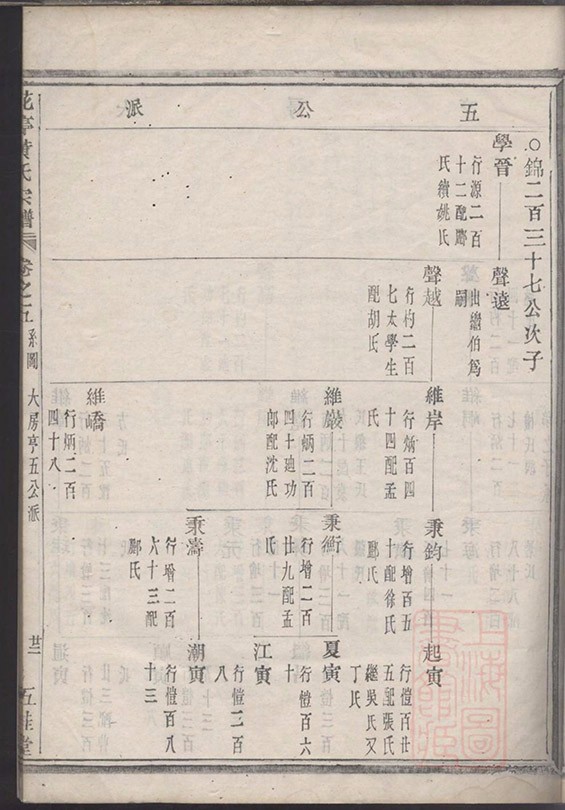 五公派
○錦二百三十七公次子
學晉
行源二百
十二配
氏續姚氏
聲遠
出繼伯爲
嗣
聲越
行杓二百
七太學生
配胡氏
維岸
行炳百四
十四配孟
氏
維嚴
行炳二百
四十迪功
郎配沈氏
維嶠
行炳二百
四十八
秉鈞
行增百五
十配徐氏
鄭氏
秉衡
行增二百
廿九配孟
氏
秉濤
行增二百
六十三配
鄭氏
起寅
行愷百廿
五配張氏
繼吳氏又
丁氏
夏寅
行愷百六
十
江寅
行愷二百
八
潮寅
行愷百八
十三
花亭黃氏宗譜
卷之五
系圖
大房亨五公派
廿二
五桂堂
上海圖